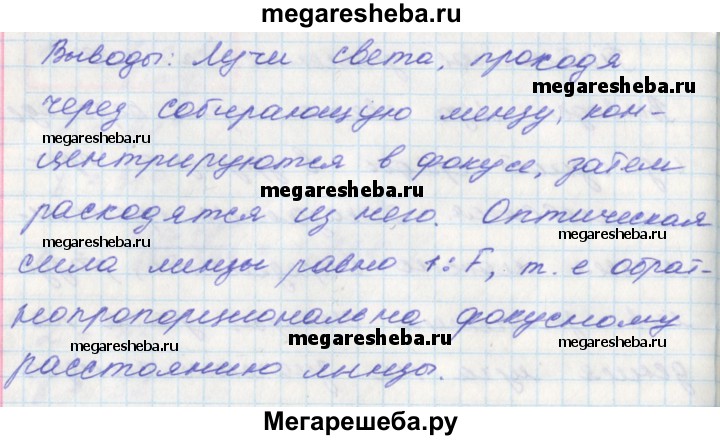 megaresheba.ru
Выводы: Лучи света, проходя
megaresheba.ru
megaresheba.ru
через собирающую линзу, кон-
megaresheba.ru
центрируются в фокусе, затем
megaresheba.ru
расходятся из него. Оптическая
megaresheba.ru
megaresheba.ru
сила линзы равно 1:F, т. е обрат-
нопропорциональна фокусному
megaresheba.ru
megaresheba.ru
расстоянию линзы.
Мегарешеба.ру